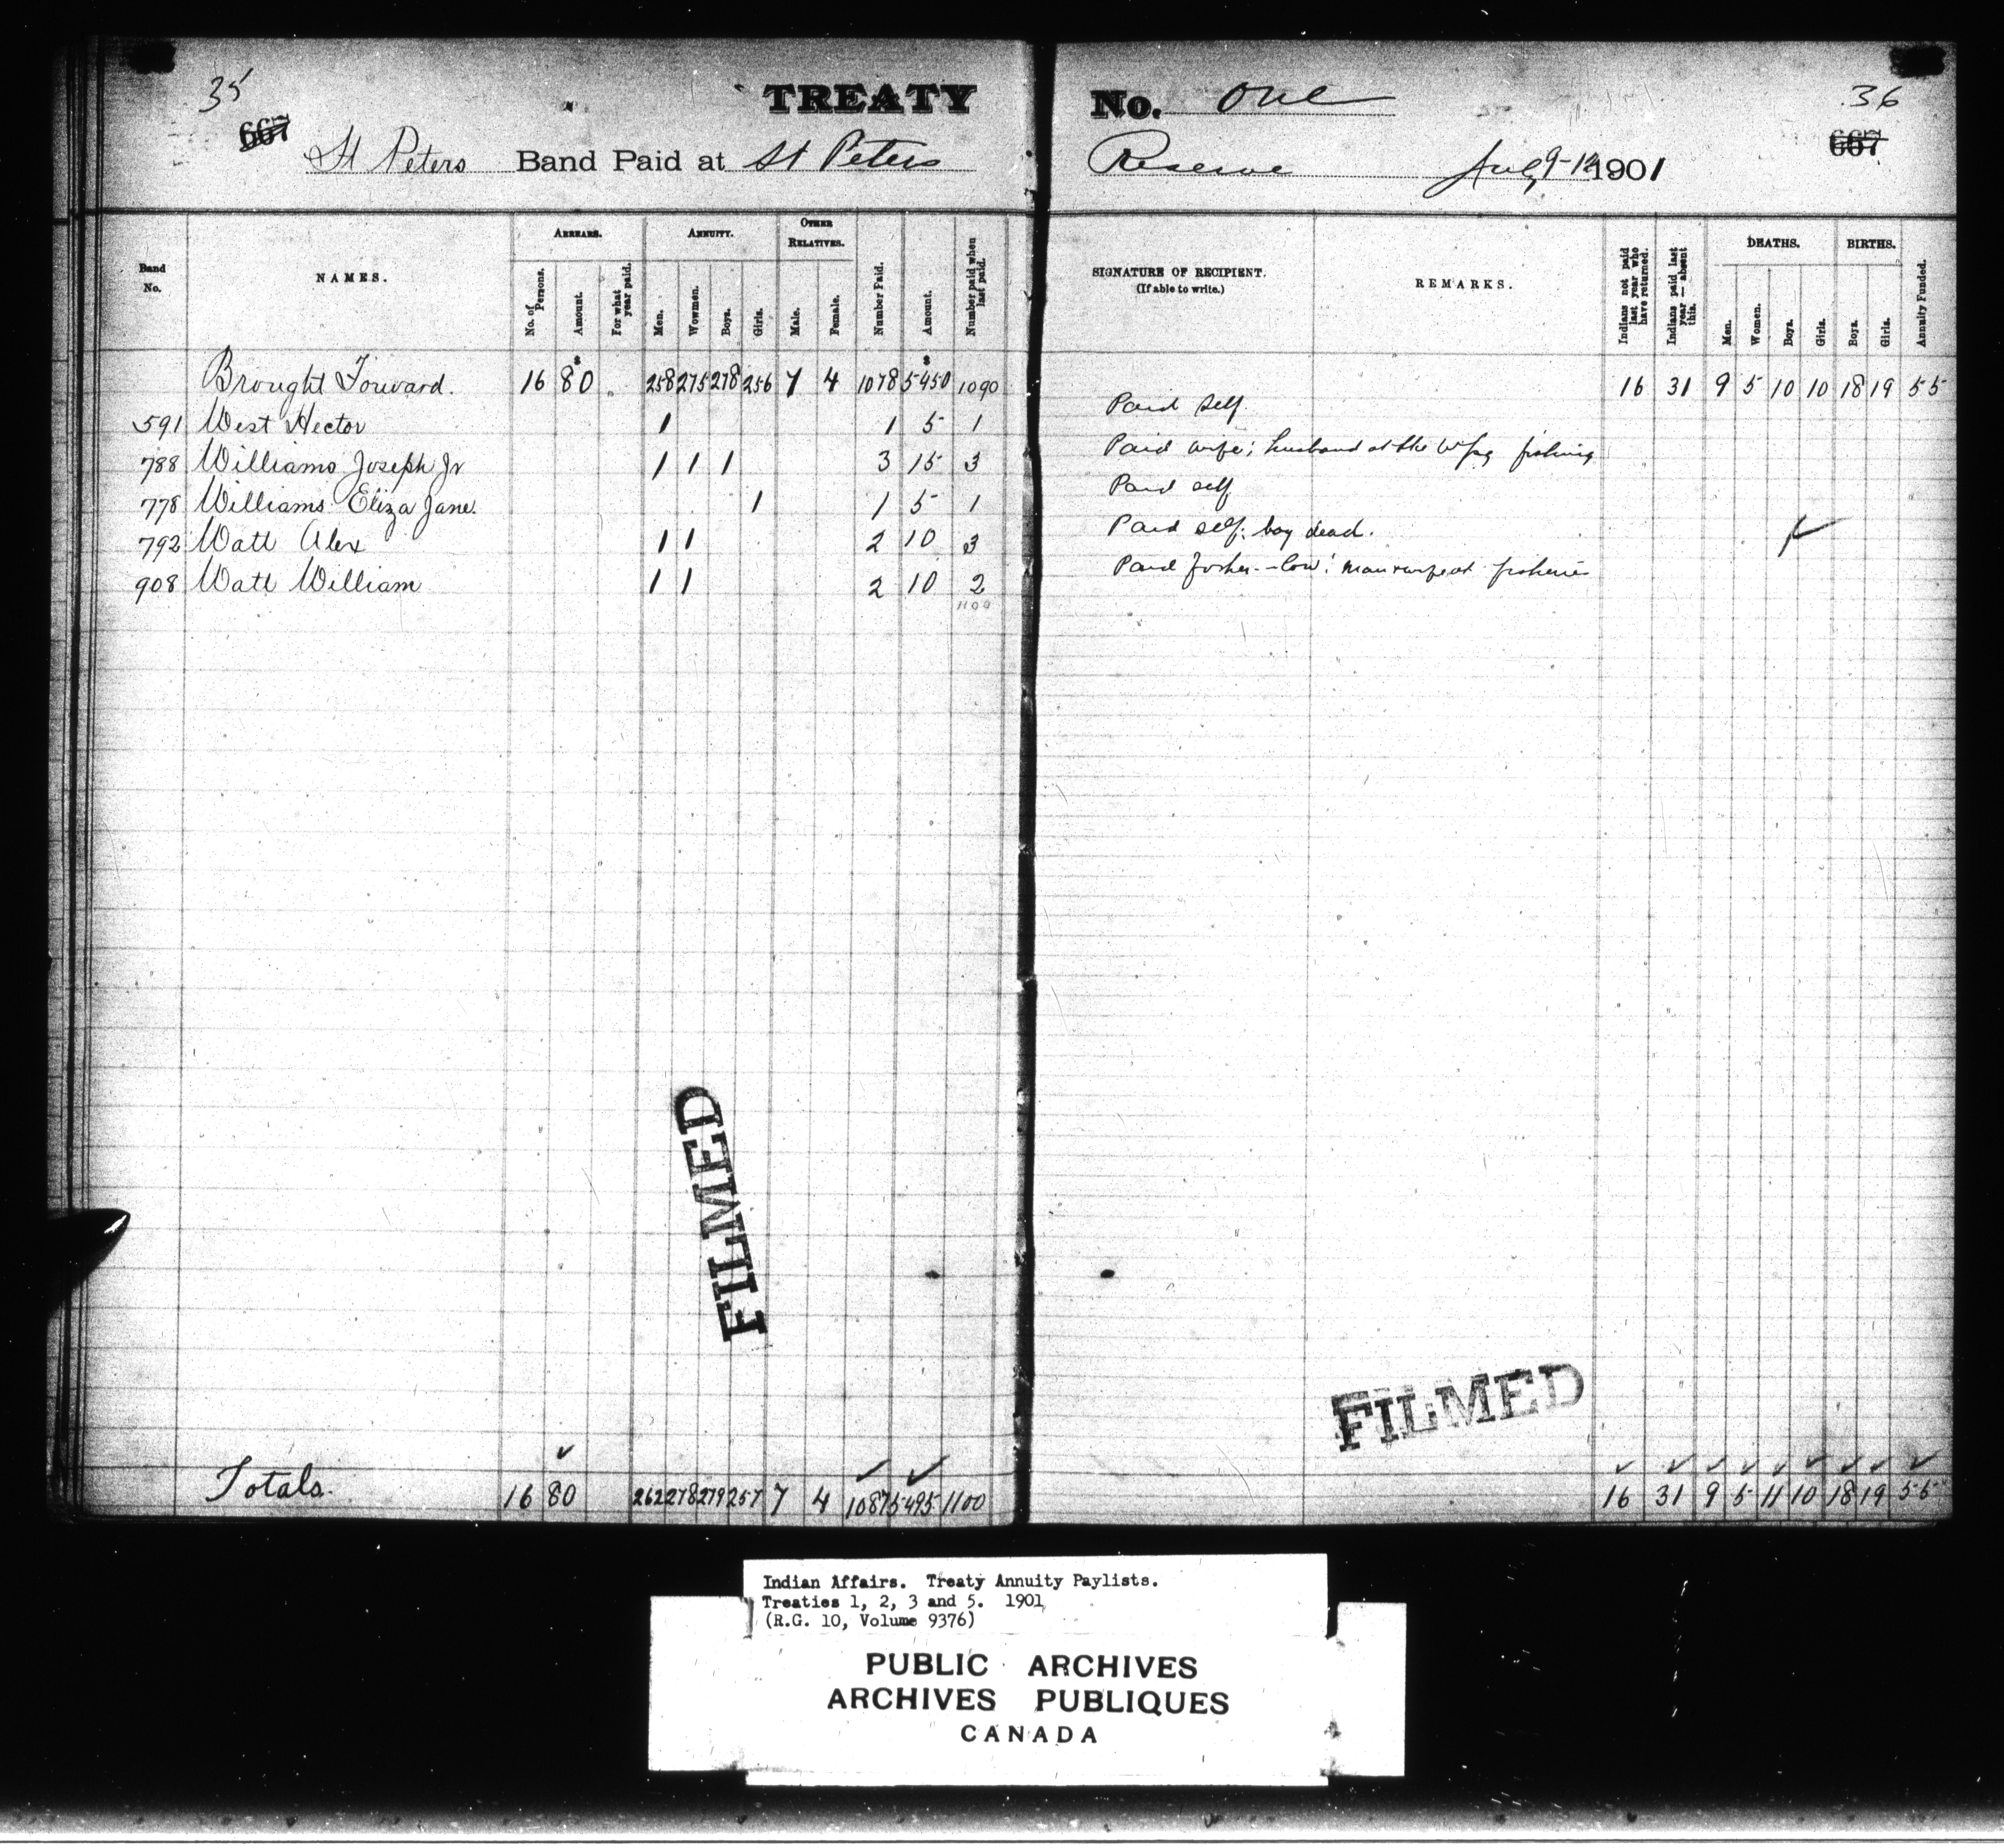 35
667
TREATY
St Peters Band Paid at St Peters
Band No.
NAMES.
ARREARS.
No. of Persons.
Amount.
For what year paid.
ANNUITY.
Men.
Wowmen.
Boys.
Girls.
OTHER RELATIVES.
Male.
Female.
Number Paid.
Amount.
Number paid when last paid.
$ $
Brought Forward. 16 80 258 275 278 256 7 4 1078 5450 1090
591 West Hector 1 1 5 1
788 Williams Joseph Jr 1 1 1 3 15 3
778 Williams Eliza Jane. 1 1 5 1
792 Watt Alex 1 1 2 10 3
908 Watt William 1 1 2 10 2
1100
FILMED
Totals. 16 80 262 278 279 257 7 4 1087 5495 1100
No. One
36
667
Reserve Aug 9-12 1901
SIGNATURE OF RECIPIENT.
(If able to write.)
REMARKS.
Indians not paid last year who have returned.
Indians paid last year — absent this.
DEATHS.
Men.
Women.
Boys.
Girls.
BIRTHS.
Boys.
Girls.
Annuity Funded.
16 31 9 5 10 10 18 19 55
Paid self.
Paid wife; husband at the Wpg fishing
Paid self
Paid self; boy dead.
Paid man wife at fisheries
FILMED
16 31 9 5 11 10 18 19 55
Indian Affairs. Treaty Annuity Paylists.
Treaties 1, 2, 3 and 5. 1901
(R.G. 10, Volume 9376)
PUBLIC ARCHIVES
ARCHIVES PUBLIQUES
CANADA